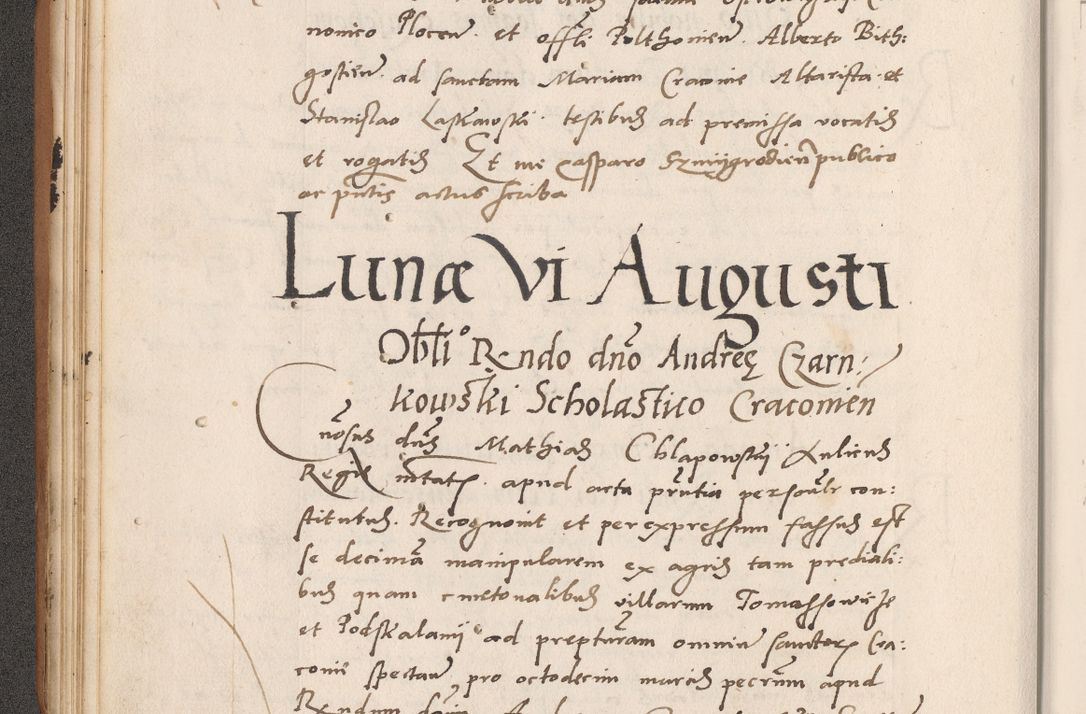 nonico Plocen̄. et offli Pulthovien̄. Alberto Bith:
gostien̄. ad sanctam Mariam Cracovie Altarista. et
Stanislao Laskawski. testibus ad premissa vocatis
et rogatis Et me Casparo Szmygrodien̄ publico
ac pn̄tis actus scriba
Lunæ Vi Augusti
Obłio Rendo dno Andreę Czarn:
kowski Scholastico Cracovien
Gn̄osus dn̄s Mathias Chlapowskij Aulicus
Regie mtatis. apud acta pn̄tia personalr con:
stitutus. Recognovit et per expressum fassus est
se decimā manipularem ex agris tam prediali:
bus quam cmetonalibus villarum Tomassowicze
et Podskalanij ad prepturam omniu sanctorum Cra:
covie spectan̄ pro octodecim marcis pecun̄m apud